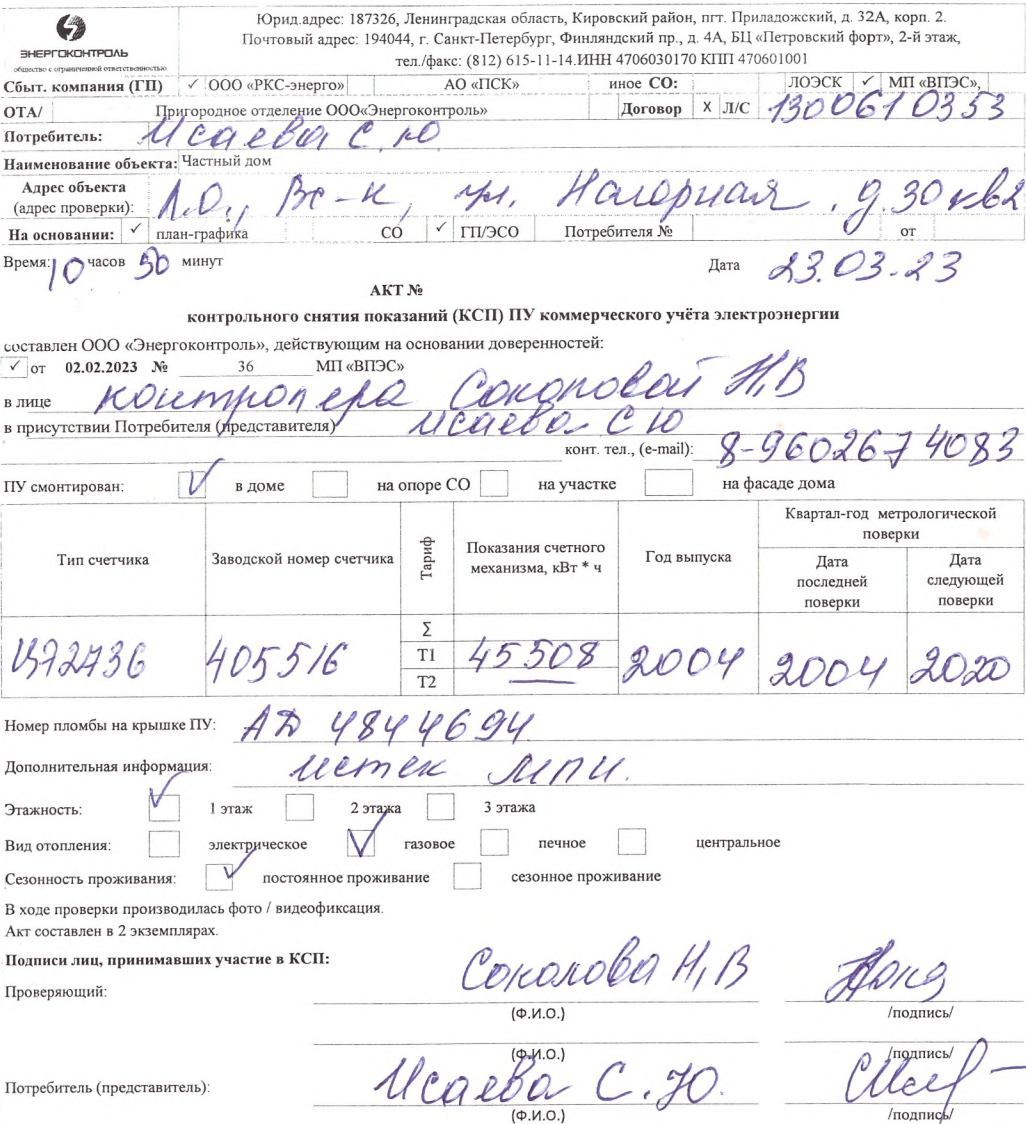 ЭНЕРГОКОНТРОЛЬ
общество с ограниченной ответственностью
Юрид.адрес: 187326, Ленинградская область, Кировский район, пгт. Приладожский, д. 32А, корп. 2.
Почтовый адрес: 194044, г. Санкт-Петербург, Финляндский пр., д. 4А, БЦ «Петровский форт», 2-й этаж,
тел./факс: (812) 615-11-14.ИНН 4706030170 КПП 470601001
Сбыт. компания (ГП) ✓ ООО «РКС-энерго» АО «ПСК» иное СО: ЛОЭСК ✓ МП «ВПЭС»,
ОТА/ Пригородное отделение ООО«Энергоконтроль» Договор X Л/С 1300610353
Потребитель: Исаева С.Ю
Наименование объекта: Частный дом
Адрес объекта (адрес проверки): Л.О., Вс-к, ул. Нагорная, д.30 кв2
На основании: ✓ план-графика СО ✓ ГП/ЭСО Потребителя № от
Время: 10 часов 50 минут Дата 23.03.23
АКТ №
контрольного снятия показаний (КСП) ПУ коммерческого учёта электроэнергии
составлен ООО «Энергоконтроль», действующим на основании доверенностей:
✓ от 02.02.2023 № 36 МП «ВПЭС»
в лице контролера Соколовой Н,В
в присутствии Потребителя (представителя) Исаева С Ю
конт. тел., (e-mail): 8-9602674083
ПУ смонтирован: ✓ в доме на опоре СО на участке на фасаде дома
Тип счетчика Заводской номер счетчика Тариф Показания счетного механизма, кВт * ч Год выпуска Квартал-год метрологической поверки
Дата последней поверки Дата следующей поверки
Σ
ЦЭ2736 405516 Т1 45508 2004 2004 2020
Т2
Номер пломбы на крышке ПУ: АД 4844694
Дополнительная информация: истек МПИ.
Этажность: ✓ 1 этаж 2 этажа 3 этажа
Вид отопления: электрическое ✓ газовое печное центральное
Сезонность проживания: ✓ постоянное проживание сезонное проживание
В ходе проверки производилась фото / видеофиксация.
Акт составлен в 2 экземплярах.
Подписи лиц, принимавших участие в КСП:
Проверяющий: Соколова Н,В
(Ф.И.О.) /подпись/
(Ф.И.О.) /подпись/
Потребитель (представитель): Исаева С.Ю.
(Ф.И.О.) /подпись/